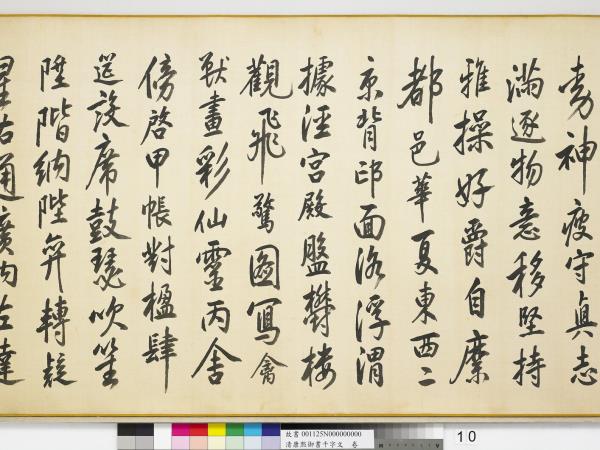 動神疲守眞志
滿逐物意移堅持
雅操好爵自縻
都邑華夏東西二
京背邙面洛浮渭
據涇宮殿盤鬱樓
觀飛驚圖寫禽
獸畫彩仙靈丙舍
傍啓甲帳對楹肆
筵設席鼓瑟吹笙
陞階納陛弁轉疑
星右通廣內左達
故書 001125N000000000
清康熙御書千字文 卷
10